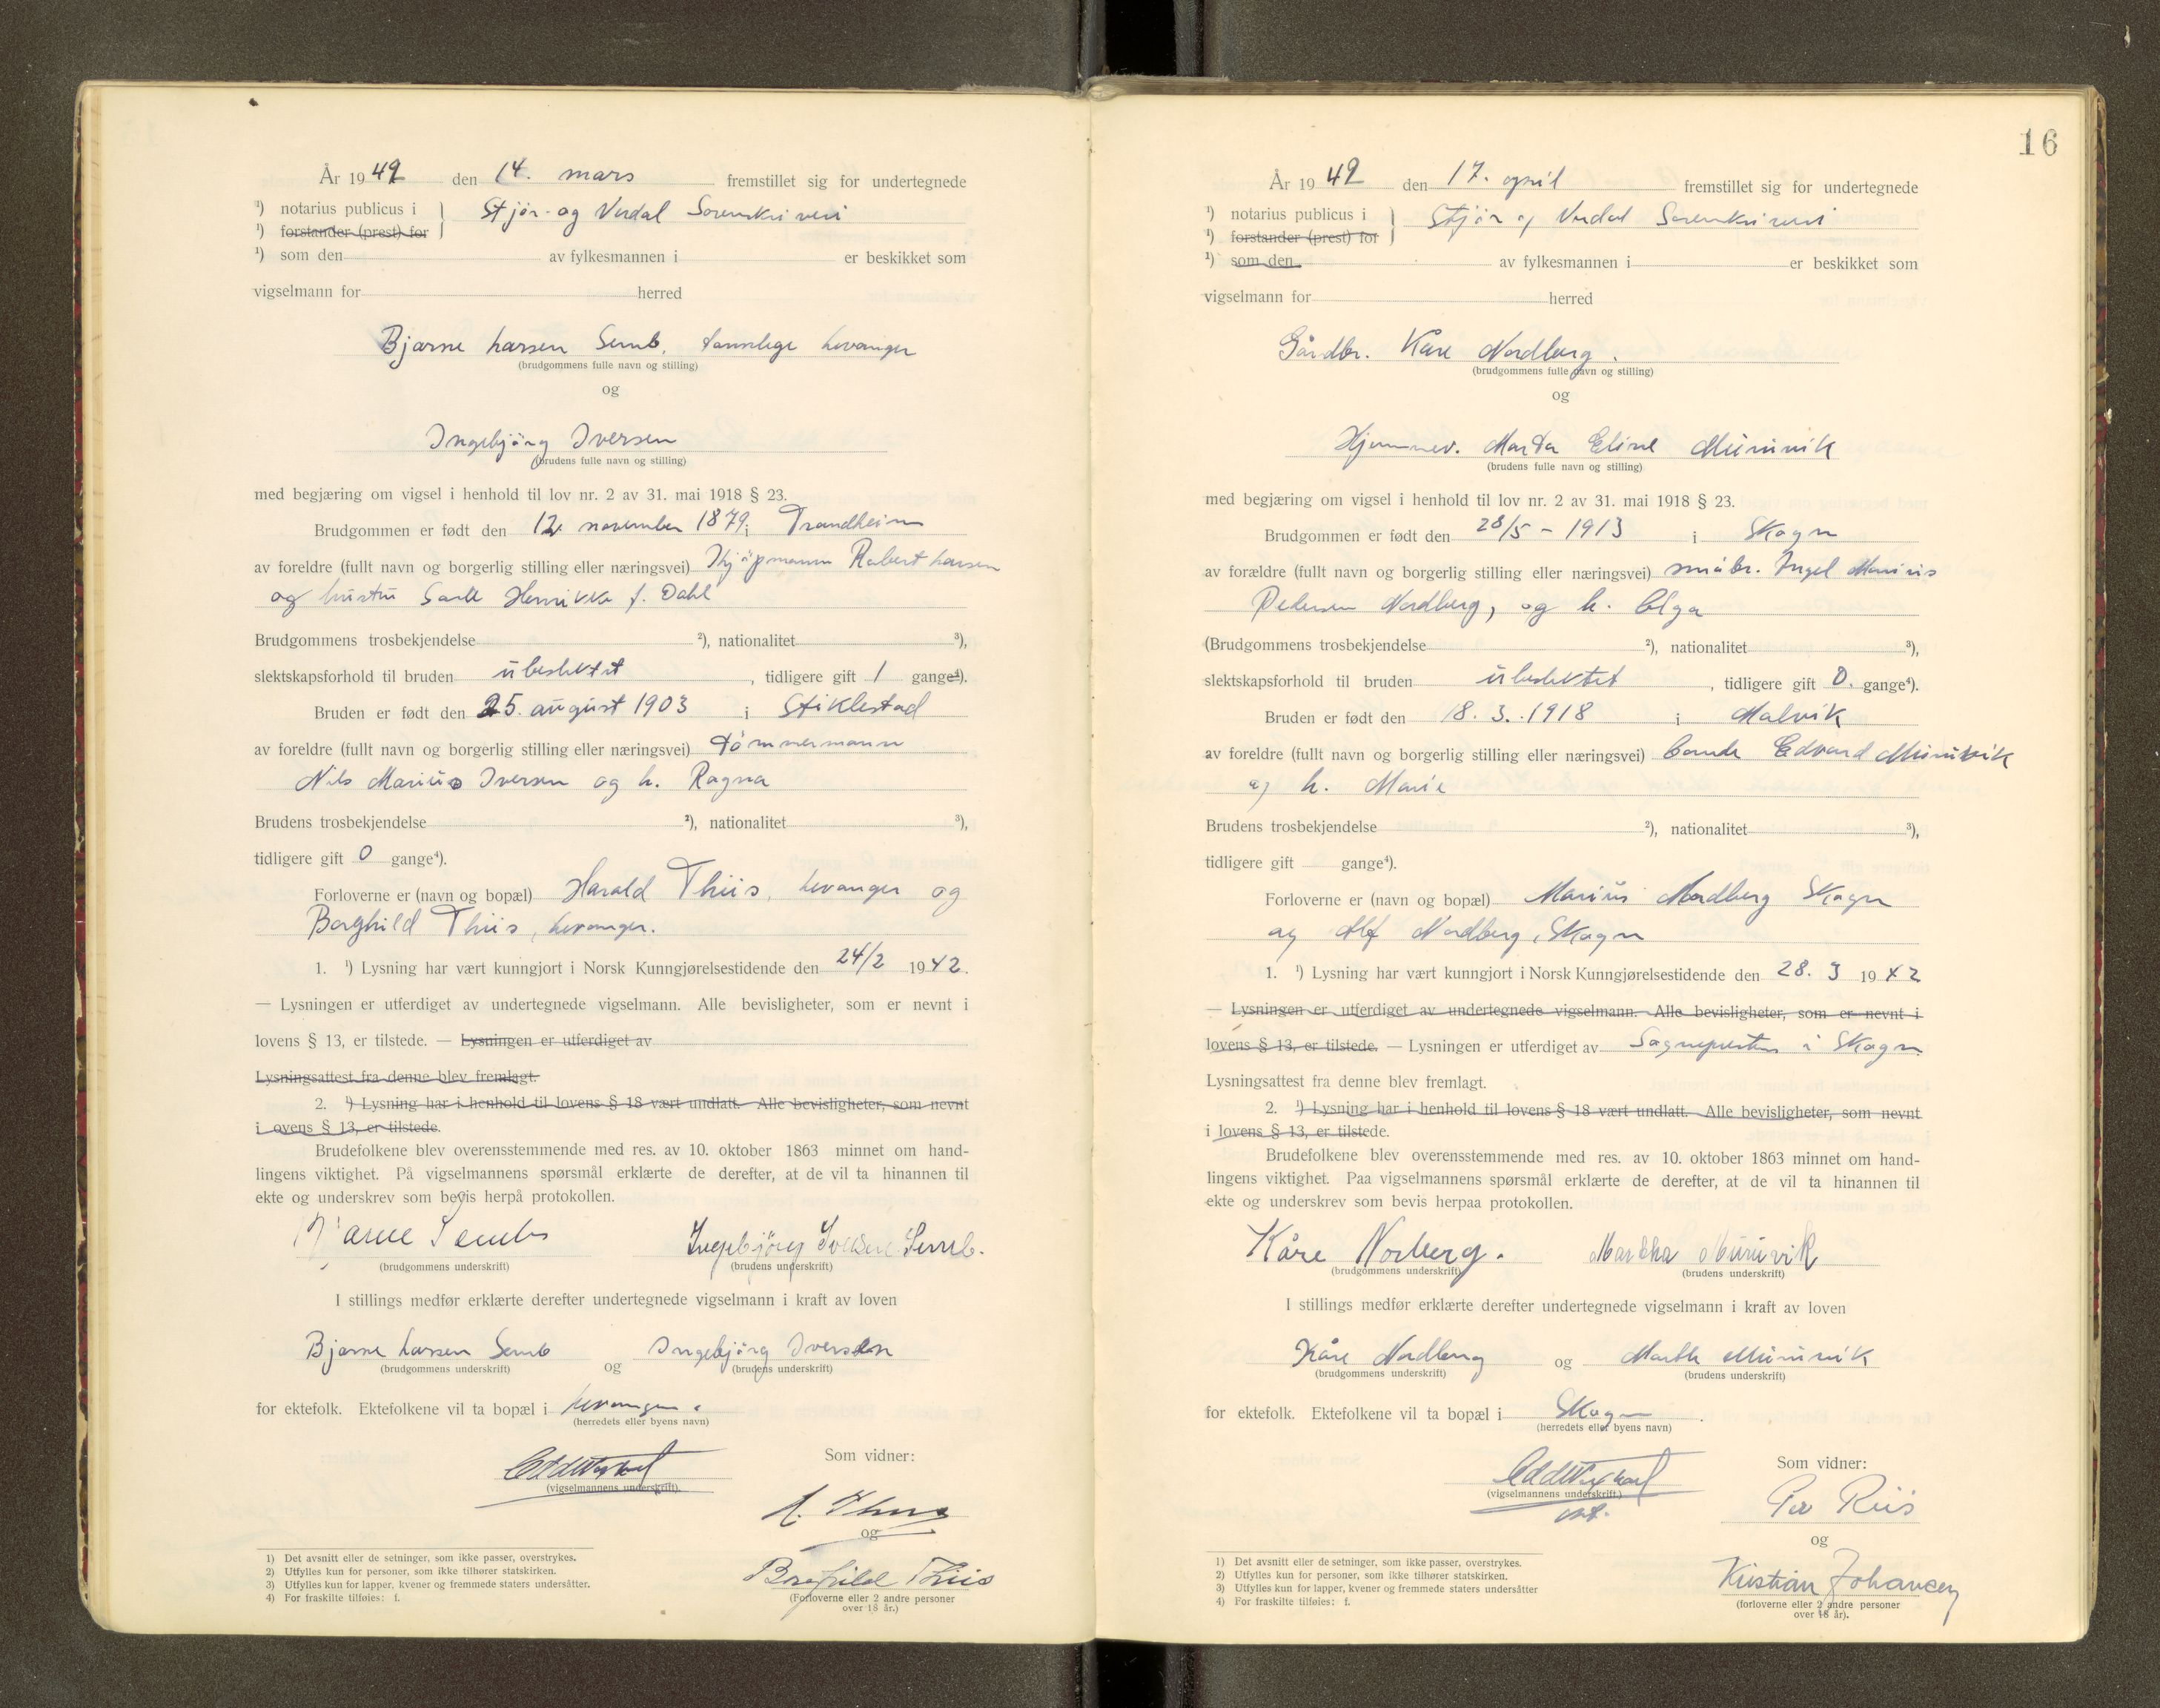 År 1942 den 14. mars fremstillet sig for undertegnede
¹) notarius publicus i } Stjør- og Verdal Sorenskriveri
¹) forstander (prest) for
¹) som den av fylkesmannen i er beskikket som
vigselmann for herred
Bjarne Larsen Semb, tannlege Levanger
(brudgommens fulle navn og stilling)
og
Ingebjörg Iversen
(brudens fulle navn og stilling)
med begjæring om vigsel i henhold til lov nr. 2 av 31. mai 1918 § 23.
Brudgommen er født den 12 november 1879 i Trondheim
av foreldre (fullt navn og borgerlig stilling eller næringsvei) Kjöpmann Robert Larsen
og hustru Henrikke f. Dahl
Brudgommens trosbekjendelse ²), nationalitet ³),
slektskapsforhold til bruden ubeslektet, tidligere gift 1 gange⁴).
Bruden er født den 25. august 1903 i Stiklestad
av foreldre (fullt navn og borgerlig stilling eller næringsvei) tömmermann
Nils Marius Iversen og h. Ragna
Brudens trosbekjendelse ²), nationalitet ³),
tidligere gift 0 gange⁴).
Forloverne er (navn og bopæl) Harald Thiis, Levanger og
Borghild Thiis, Levanger.
1. ¹) Lysning har vært kunngjort i Norsk Kunngjørelsestidende den 24/2 1942.
— Lysningen er utferdiget av undertegnede vigselmann. Alle bevisligheter, som er nevnt i
lovens § 13, er tilstede. — Lysningen er utferdiget av
Lysningsattest fra denne blev fremlagt.
2. ¹) Lysning har i henhold til lovens § 18 vært undlatt. Alle bevisligheter, som nevnt
i ovens § 13, er tilstede.
Brudefolkene blev overensstemmende med res. av 10. oktober 1863 minnet om hand-
lingens viktighet. På vigselmannens spørsmål erklærte de derefter, at de vil ta hinannen til
ekte og underskrev som bevis herpå protokollen.
Bjarne Semb Ingebjörg Iversen Semb.
(brudgommens underskrift) (brudens underskrift)
I stillings medfør erklærte derefter undertegnede vigselmann i kraft av loven
Bjarne Larsen Semb og Ingebjörg Iversen
(brudgommens underskrift) (brudens underskrift)
for ektefolk. Ektefolkene vil ta bopæl i Levanger.
(herredets eller byens navn)
(vigselmannens underskrift).
Som vidner:
H. Thiis
og
Borghild Thiis
(Forloverne eller 2 andre personer
over 18 år.)
1) Det avsnitt eller de setninger, som ikke passer, overstrykes.
2) Utfylles kun for personer, som ikke tilhører statskirken.
3) Utfylles kun for lapper, kvener og fremmede staters undersåtter.
4) For fraskilte tilføies: f.
16
År 1942 den 17. april fremstillet sig for undertegnede
¹) notarius publicus i } Stjør og Verdal Sorenskriveri
¹) forstander (prest) for
¹) som den av fylkesmannen i er beskikket som
vigselmann for herred
Gårdbr. Kåre Nordberg.
(brudgommens fulle navn og stilling)
og
Hjemmev. Marta Eline Muruvik
(brudens fulle navn og stilling)
med begjæring om vigsel i henhold til lov nr. 2 av 31. mai 1918 § 23.
Brudgommen er født den 28/5 - 1913 i Skogn
av forældre (fullt navn og borgerlig stilling eller næringsvei) småbr. Ingel Marius
Pedersen Nordberg, og h. Olga
(Brudgommens trosbekjendelse ²), nationalitet ³),
slektskapsforhold til bruden ubeslektet, tidligere gift 0. gange⁴).
Bruden er født den 18. 3. 1918 i Malvik
av foreldre (fullt navn og borgerlig stilling eller næringsvei) bonde Edvard Muruvik
og h. Marie
Brudens trosbekjendelse ²), nationalitet ³),
tidligere gift gange⁴).
Forloverne er (navn og bopæl) Marius Nordberg Skogn
og Alf Nordberg, Skogn
1. ¹) Lysning har vært kunngjort i Norsk Kunngjørelsestidende den 28. 3 1942
— Lysningen er utferdiget av undertegnede vigselmann. Alle bevisligheter, som er nevnt i
lovens § 13, er tilstede. — Lysningen er utferdiget av Sognepresten i Skogn
Lysningsattest fra denne blev fremlagt.
2. ¹) Lysning har i henhold til lovens § 18 vært undlatt. Alle bevisligheter, som nevnt
i lovens § 13, er tilstede.
Brudefolkene blev overensstemmende med res. av 10. oktober 1863 minnet om hand-
lingens viktighet. Paa vigselmannens spørsmål erklærte de derefter, at de vil ta hinannen til
ekte og underskrev som bevis herpaa protokollen.
Kåre Norberg. Martha Muruvik
(brudgommens underskrift) (brudens underskrift)
I stillings medfør erklærte derefter undertegnede vigselmann i kraft av loven
Kåre Nordberg og Martha Muruvik
(brudgommens underskrift) (brudens underskrift)
for ektefolk. Ektefolkene vil ta bopæl i Skogn.
(herredets eller byens navn)
(vigselmannens underskrift.)
Som vidner:
Per Riis
og
Kristian Johansen
(forloverne eller 2 andre personer
over 18 år).
1) Det avsnitt eller de setninger, som ikke passer, overstrykes.
2) Utfylles kun for personer, som ikke tilhører statskirken.
3) Utfylles kun for lapper, kvener og fremmede staters undersåtter
4) For fraskilte tilføies: f.